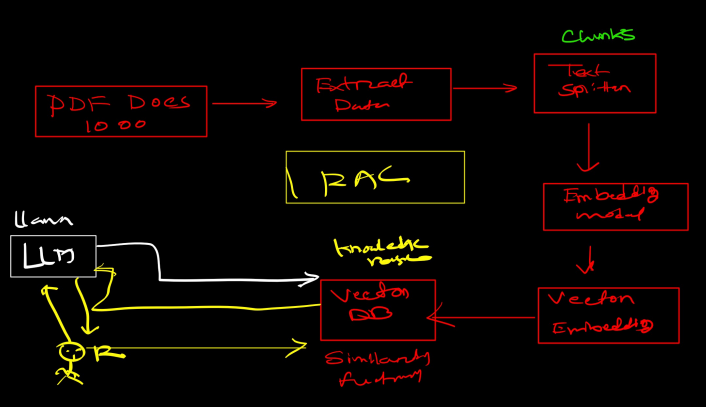 Chunks
PDF Docs
1000
Extract
Data
Text
Splitter
RAG
Embeddig
model
Llama
LLM
Knowledge
Vector
DB
Vector
Embeddig
R
Similarity